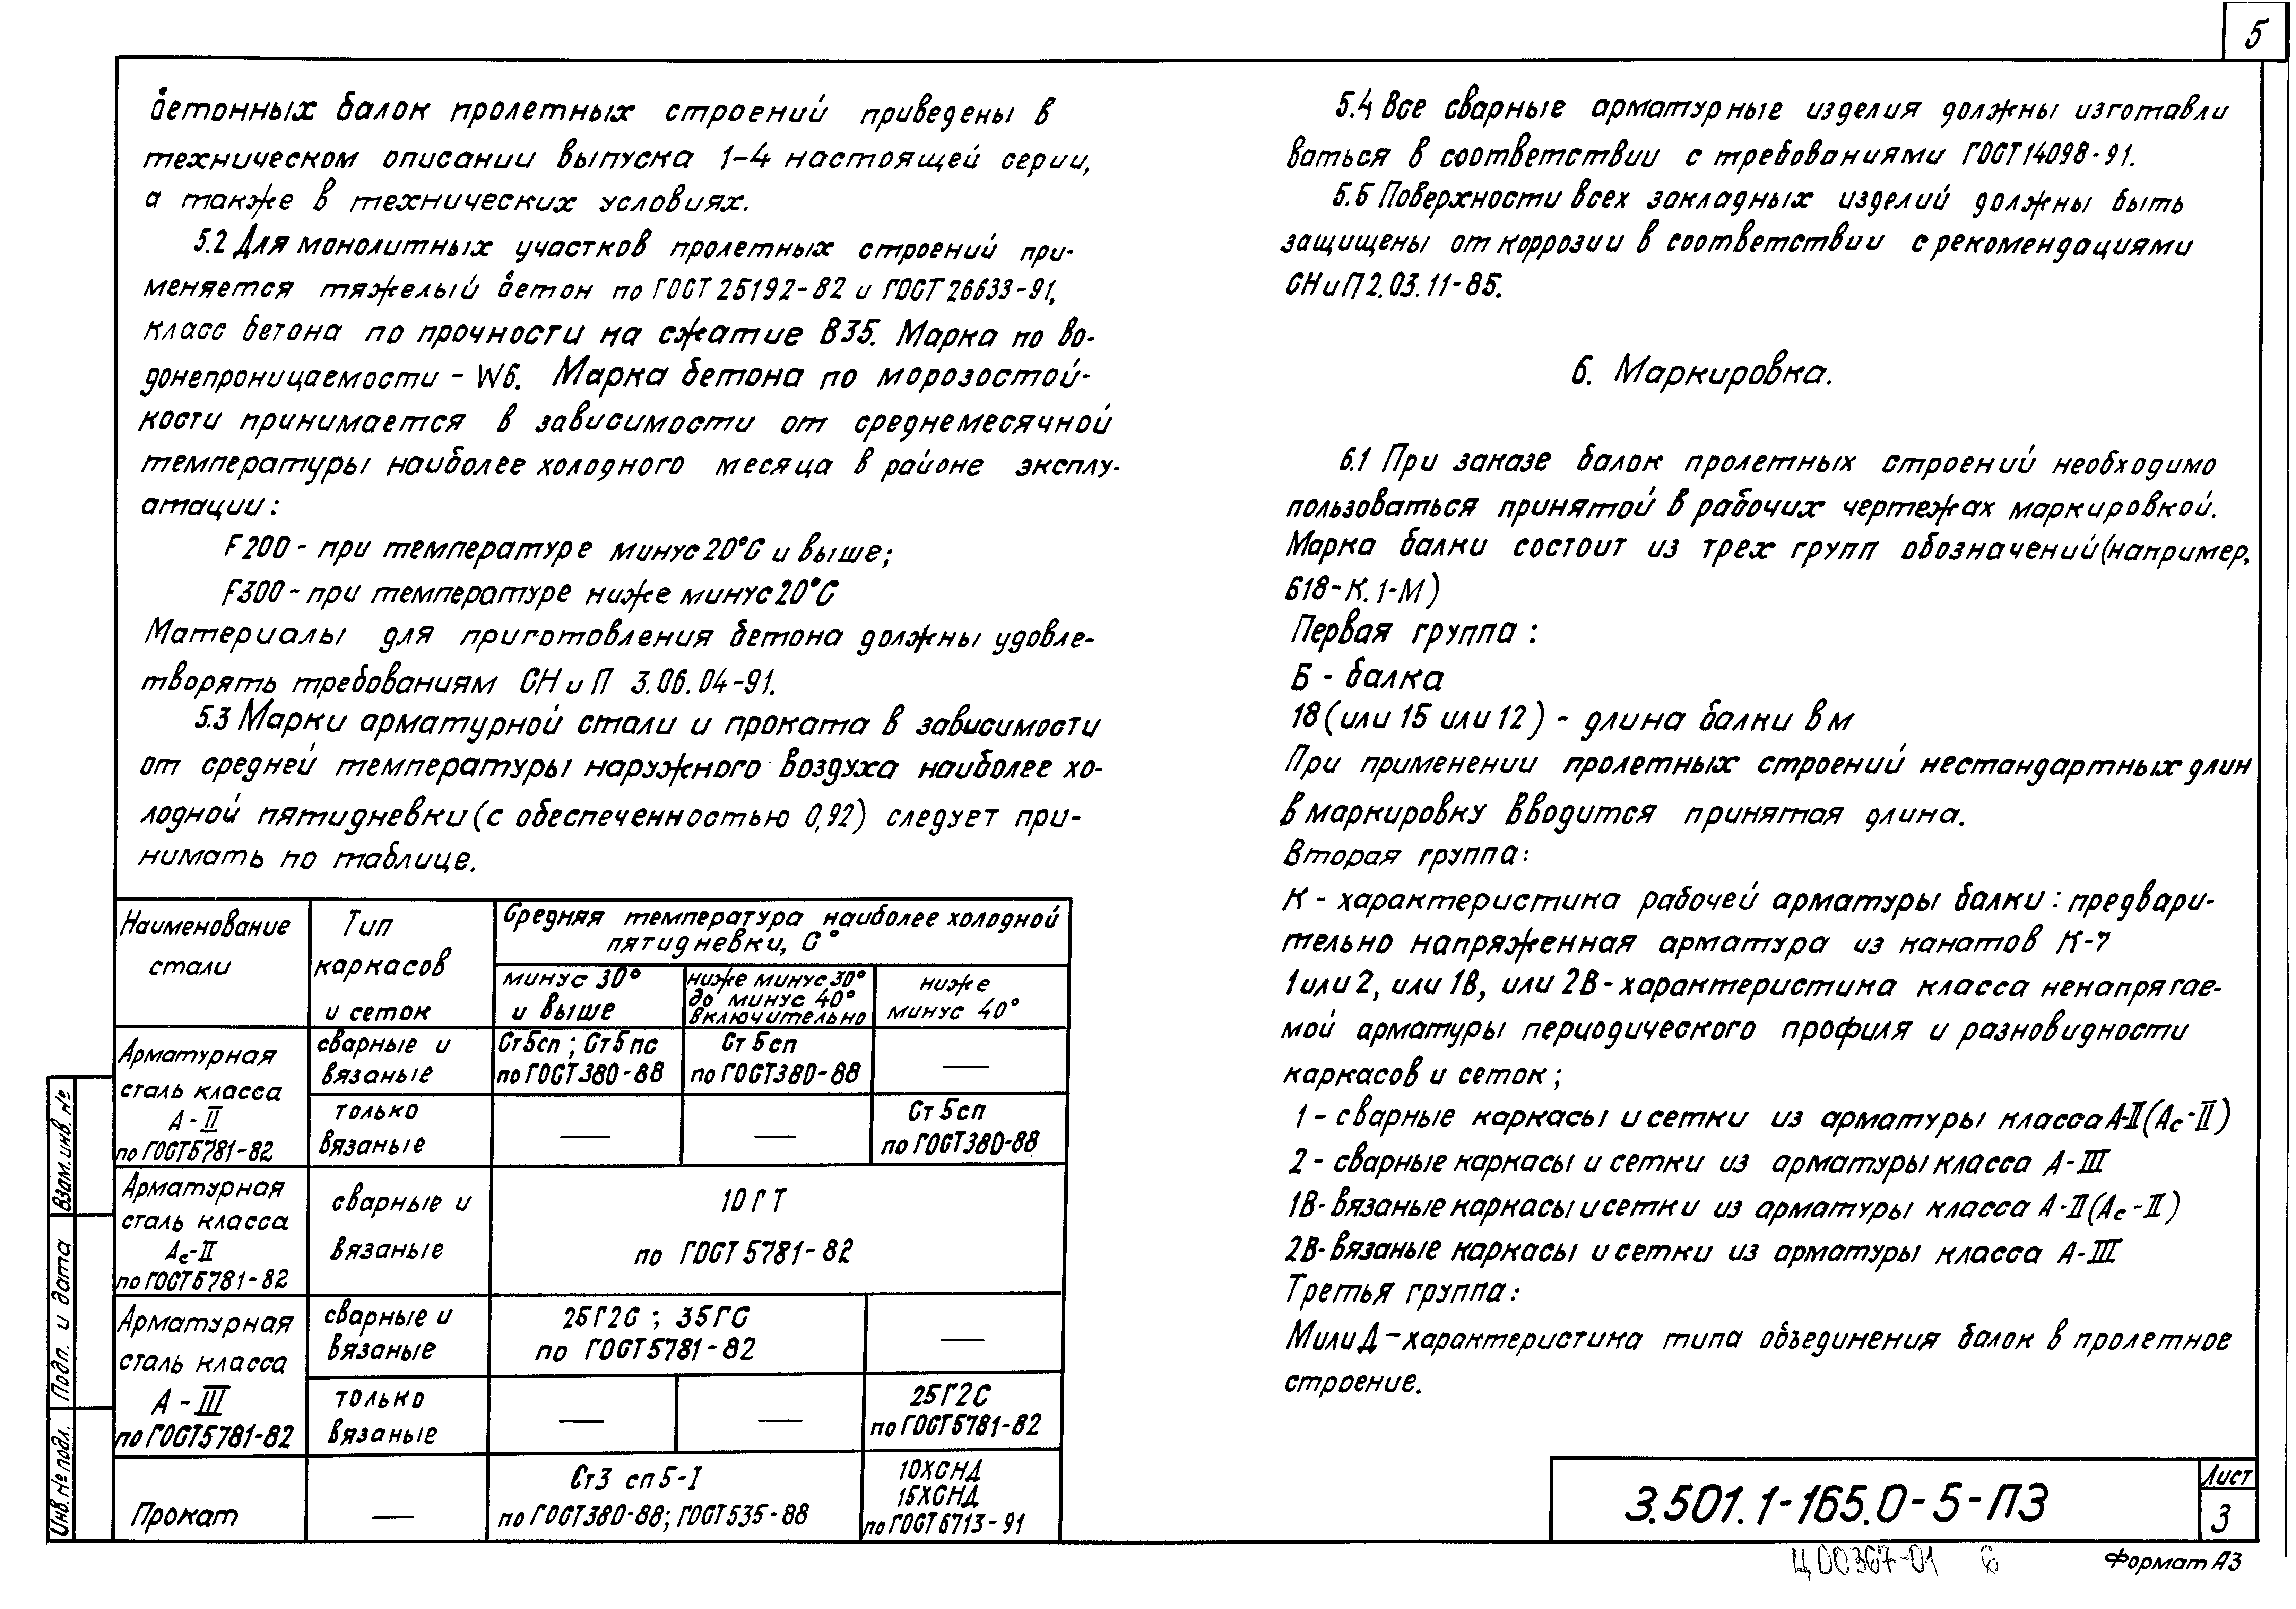 5
бетонных балок пролетных строений приведены в
техническом описании выпуска 1-4 настоящей серии,
а также в технических условиях.
5.2 Для монолитных участков пролетных строений при-
меняется тяжелый бетон по ГОСТ 25192-82 и ГОСТ 26633-91,
класс бетона по прочности на сжатие В35. Марка по во-
донепроницаемости - W6. Марка бетона по морозостой-
кости принимается в зависимости от среднемесячной
температуры наиболее холодного месяца в районе эксплу-
атации:
F200 - при температуре минус 20°С и выше;
F300 - при температуре ниже минус 20°С
Материалы для приготовления бетона должны удовле-
творять требованиям СНиП 3.06.04-91.
5.3 Марки арматурной стали и проката в зависимости
от средней температуры наружного воздуха наиболее хо-
лодной пятидневки (с обеспеченностью 0,92) следует при-
нимать по таблице.
Наименование
стали
Тип
каркасов
и сеток
Средняя температура наиболее холодной
пятидневки, С°
минус 30°
и выше
ниже минус 30°
до минус 40°
включительно
ниже
минус 40°
Арматурная
сталь класса
А-II
по ГОСТ 5781-82
сварные и
вязаные
Ст5сп; Ст5пс
по ГОСТ 380-88
Ст5сп
по ГОСТ 380-88
—
только
вязаные
—
—
Ст5сп
по ГОСТ 380-88
Арматурная
сталь класса
Ас-II
по ГОСТ 5781-82
сварные и
вязаные
10ГТ
по ГОСТ 5781-82
Арматурная
сталь класса
А-III
по ГОСТ 5781-82
сварные и
вязаные
25Г2С; 35ГС
по ГОСТ 5781-82
—
только
вязаные
—
—
25Г2С
по ГОСТ 5781-82
Прокат
—
Ст3 сп5-I
по ГОСТ 380-88; ГОСТ 535-88
10ХСНД
15ХСНД
по ГОСТ 6713-91
5.4 Все сварные арматурные изделия должны изготавли
ваться в соответствии с требованиями ГОСТ 14098-91.
5.6 Поверхности всех закладных изделий должны быть
защищены от коррозии в соответствии с рекомендациями
СНиП 2.03.11-85.
6. Маркировка.
6.1 При заказе балок пролетных строений необходимо
пользоваться принятой в рабочих чертежах маркировкой.
Марка балки состоит из трех групп обозначений (например,
Б18-К.1-М)
Первая группа:
Б - балка
18 (или 15 или 12) - длина балки в м
При применении пролетных строений нестандартных длин
в маркировку вводится принятая длина.
Вторая группа:
К - характеристика рабочей арматуры балки: предвари-
тельно напряженная арматура из канатов К-7
1 или 2, или 1В, или 2В - характеристика класса ненапрягае-
мой арматуры периодического профиля и разновидности
каркасов и сеток;
1 - сварные каркасы и сетки из арматуры класса А-II (Ас-II)
2 - сварные каркасы и сетки из арматуры класса А-III
1В - вязаные каркасы и сетки из арматуры класса А-II (Ас-II)
2В - вязаные каркасы и сетки из арматуры класса А-III
Третья группа:
М или Д - характеристика типа объединения балок в пролетное
строение.
Взам. инв. №
Подп. и дата
Инв. № подл.
3.501.1-165.0-5-ПЗ
Лист
3
Ц00367-01 6
Формат А3